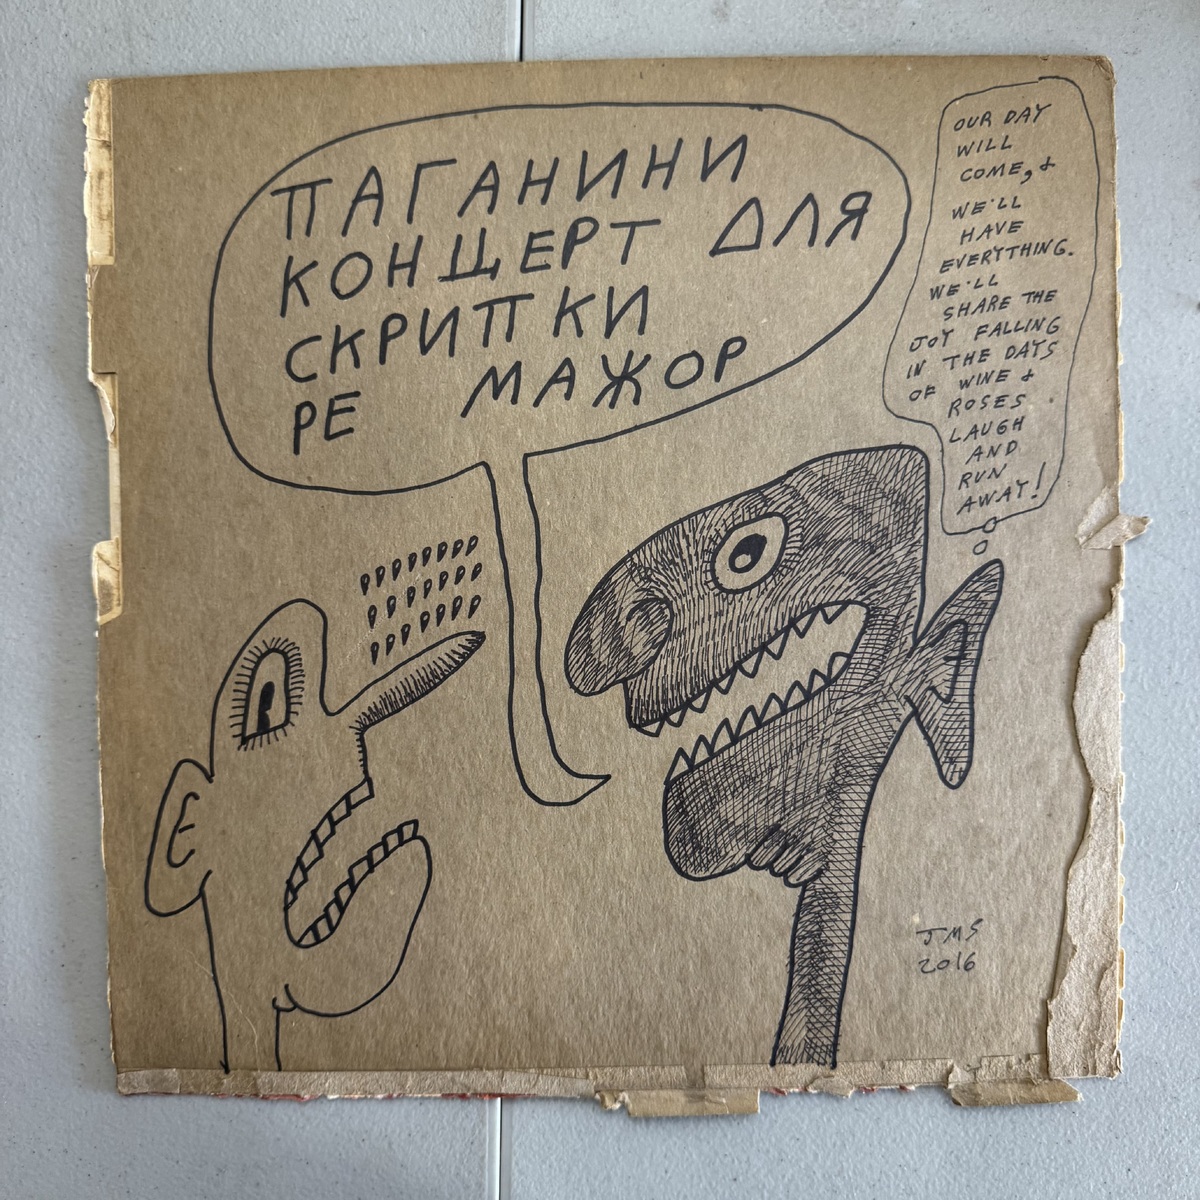 ПАГАНИНИ
КОНЩЕРТ ДЛЯ
СКРИПКИ
РЕ МАЖОР
OUR DAY
WILL
COME, &
WE'LL
HAVE
EVERYTHING.
WE'LL
SHARE THE
JOY FALLING
IN THE DAYS
OF WINE &
ROSES.
LAUGH
AND
RUN
AWAY!
JMS
2016